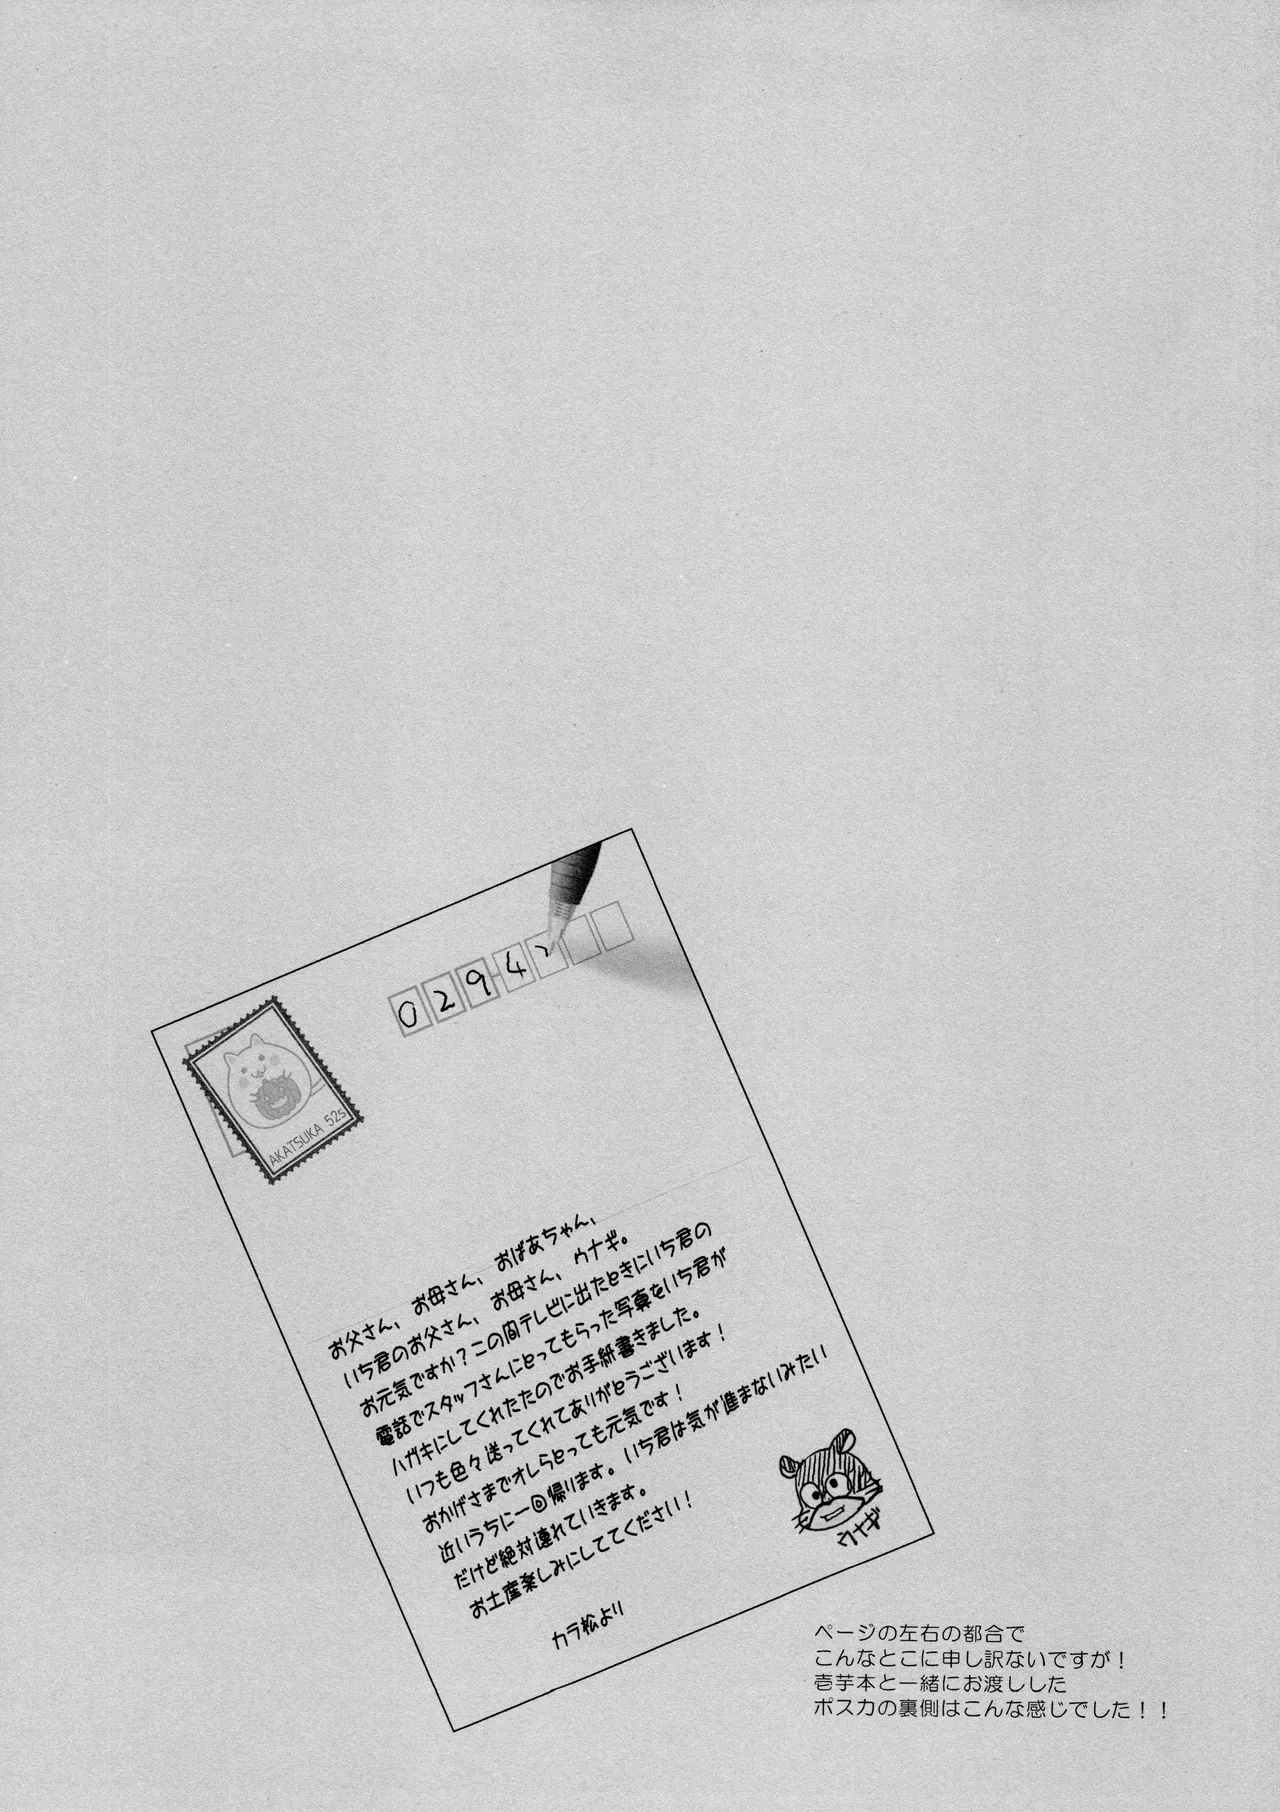 02942
AKATSUKA 52s
お父さん、お母さん、おばあちゃん、
いち君のお父さん、お母さん、ウナギ。
お元気ですか？この間テレビに出たときにいち君の
電話でスタッフさんにとってもらった写真をいち君が
ハガキにしてくれたたのでお手紙書きました。
いつも色々送ってくれてありがとうございます！
おかげさまでオレらとっても元気です！
近いうちに一回帰ります。いち君は気が進まないみたい
だけど絶対連れていきます。
お土産楽しみにしててください！
カラ松より
ウナギ
ページの左右の都合で
こんなとこに申し訳ないですが！
壱芋本と一緒にお渡しした
ポスカの裏側はこんな感じでした！！